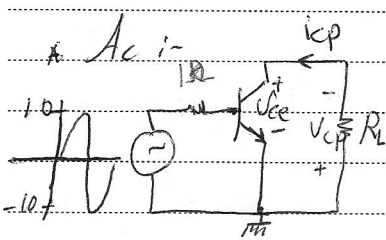 * Ac i~
icp
1Ω
10
+
Vce
-
-
Vcp
RL
+
~
-10